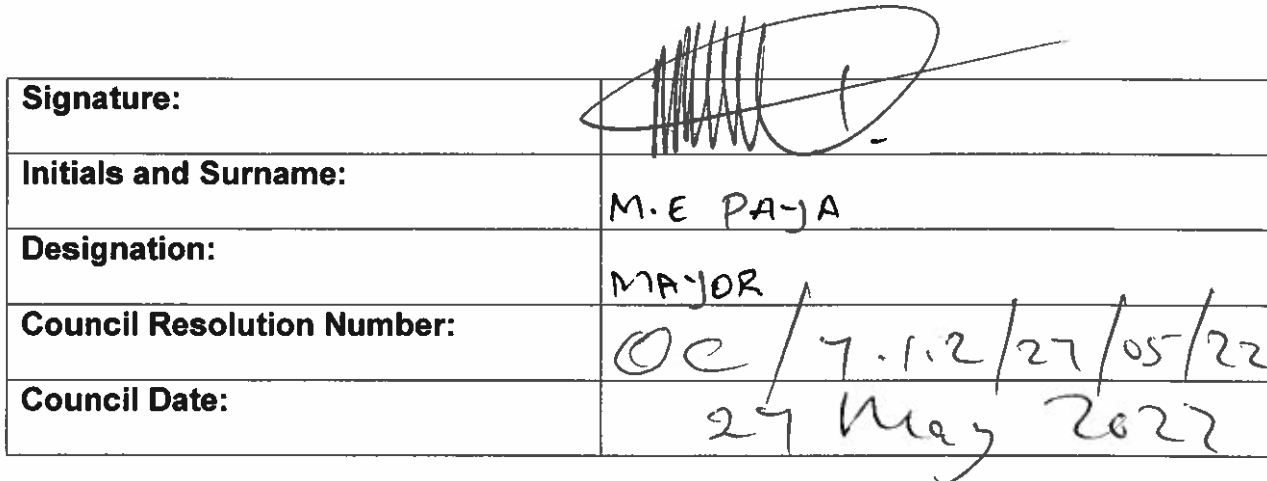 Signature:
Initials and Surname:
M.E PAYA
Designation:
MAYOR
Council Resolution Number:
OC/7.1.2/27/05/22
Council Date:
27 May 2022